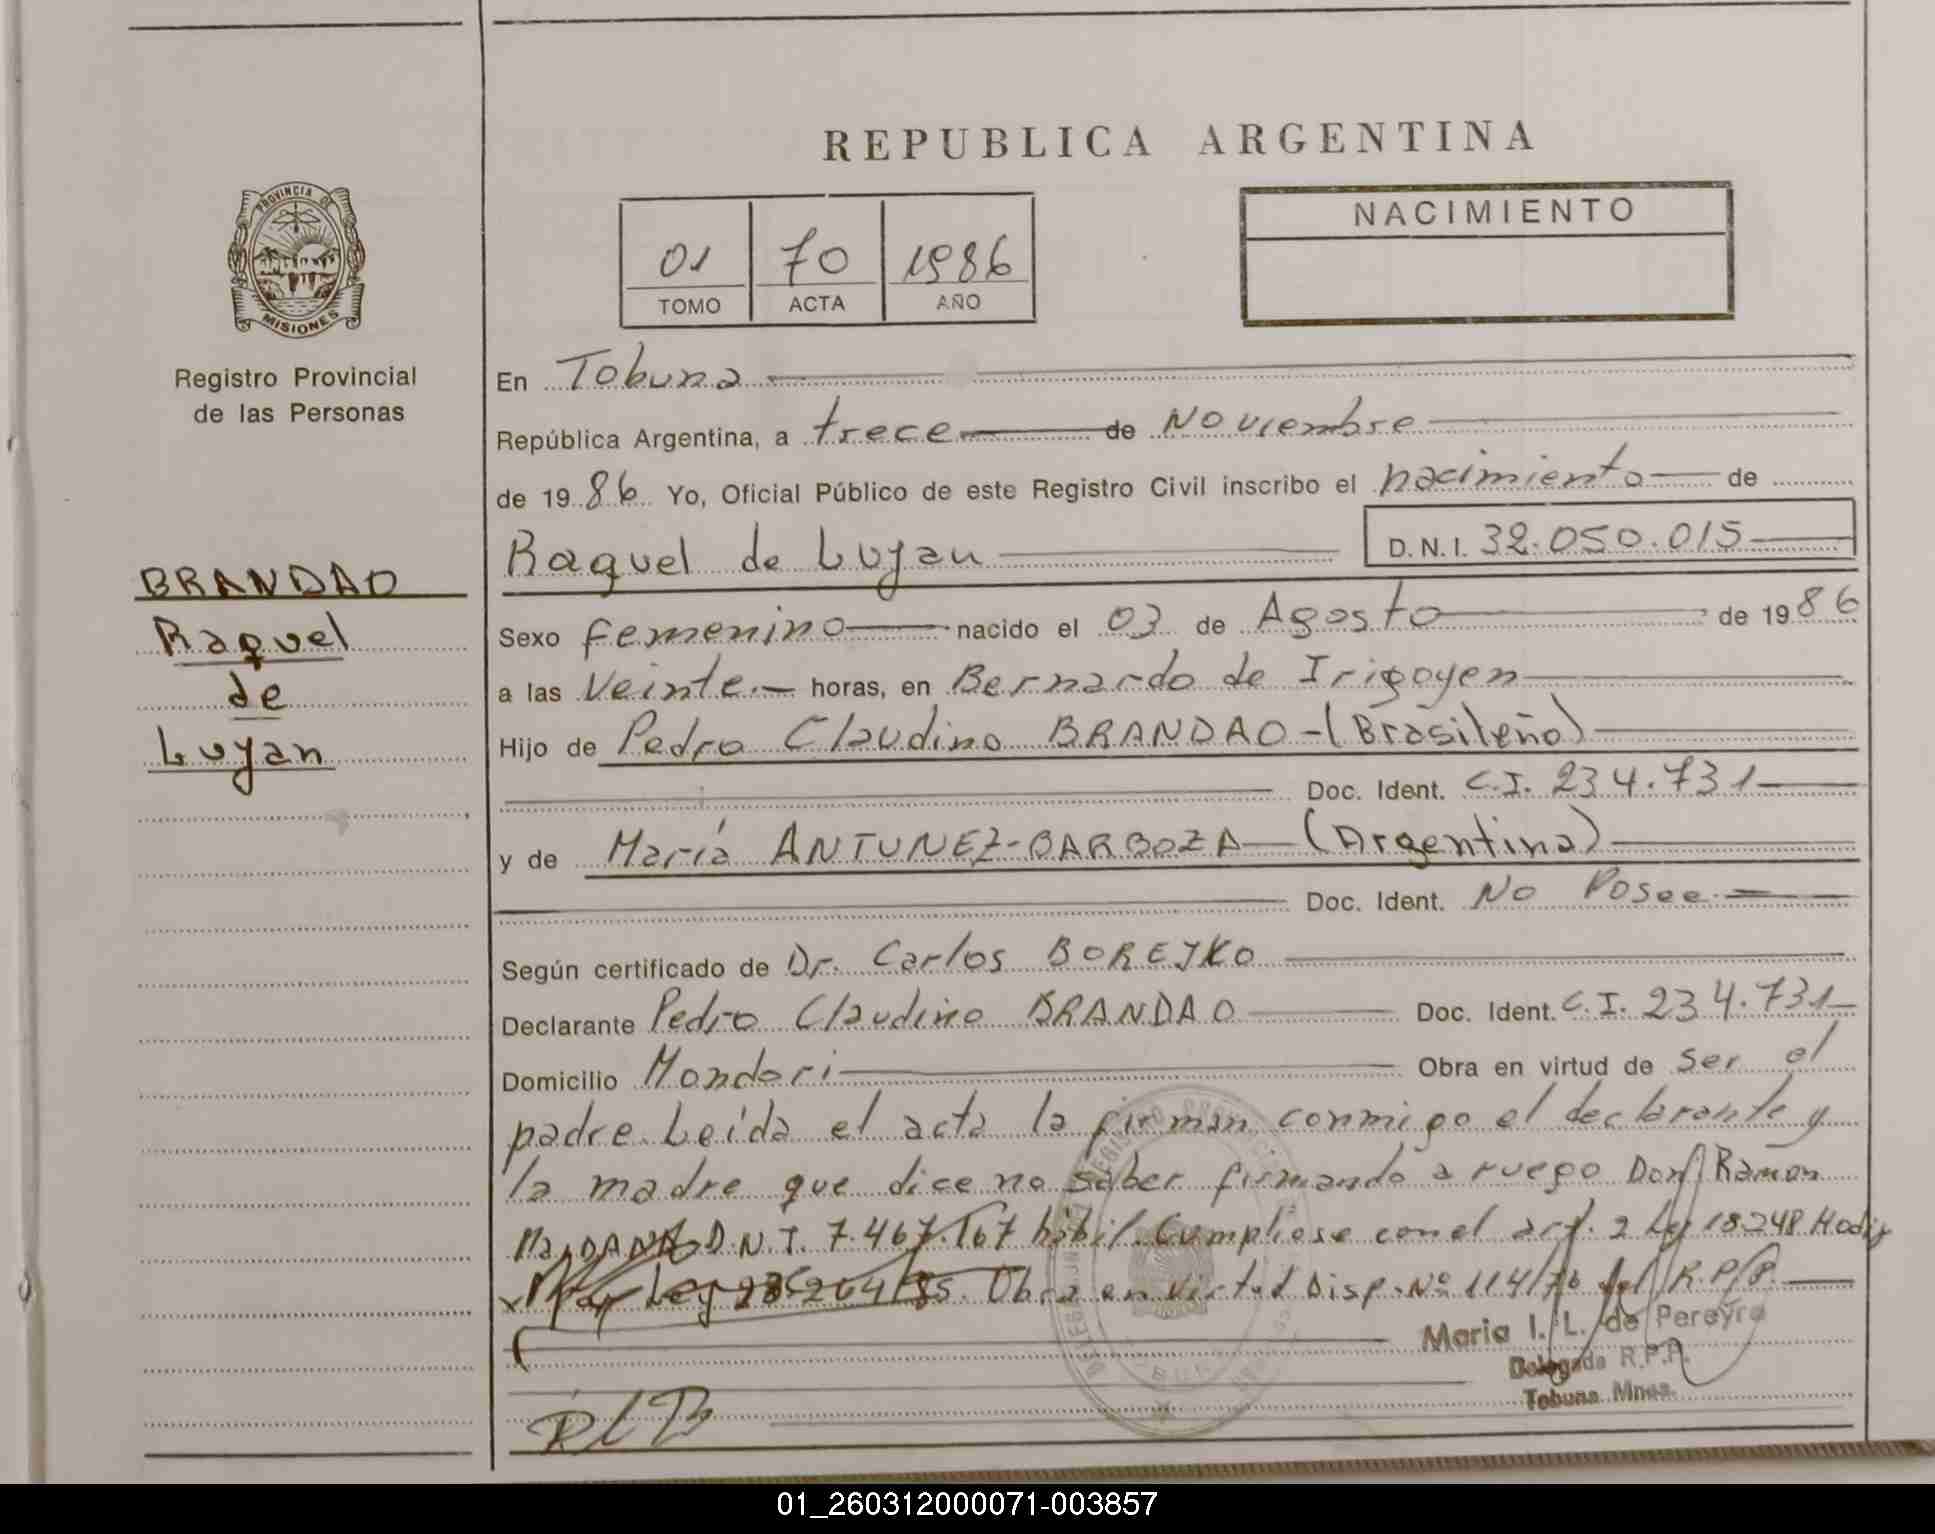 REPUBLICA ARGENTINA
PROVINCIA DE
MISIONES
Registro Provincial
de las Personas
01 70 1986
TOMO ACTA AÑO
NACIMIENTO
BRANDAO
Raquel
de
Luyan
En Tobuna
República Argentina, a trece de Noviembre
de 1986 Yo, Oficial Público de este Registro Civil inscribo el nacimiento de
Raquel de Luyan D.N.I. 32.050.015
Sexo femenino nacido el 03 de Agosto de 1986
a las Veinte horas, en Bernardo de Irigoyen
Hijo de Pedro Claudino BRANDAO-(Brasileño)
Doc. Ident. C.I. 234.731
y de María ANTUNEZ-BARBOZA (Argentina)
Doc. Ident. No Posee
Según certificado de Dr. Carlos BOREJKO
Declarante Pedro Claudino BRANDAO Doc. Ident. C.I. 234.731
Domicilio Mondori Obra en virtud de ser el
padre. Leída el acta la firman conmigo el declarante y
la madre que dice no saber firmando a ruego Don Ramón
D.N.I. 7.467.167 hábil. Cumpliose con el art. 2 Ley 18.248 Modif
x Ley 23264/85. Obra en virtud Disp. Nº 114/76 del R.P.P.
Maria I. L. de Pereyra
Delegada R.P.P.
Tobuna Mnes.
01_260312000071-003857